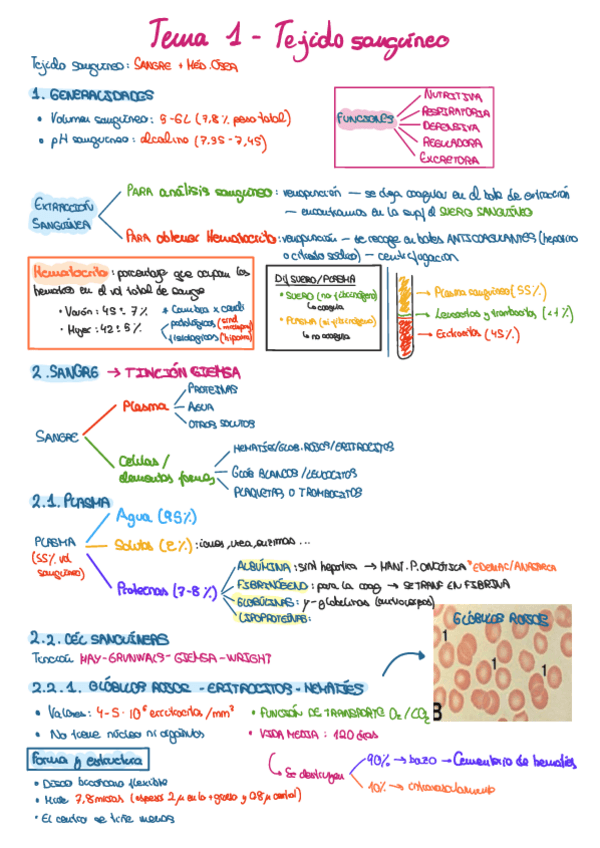 Tema 1 - Tejido sanguíneo
Tejido sanguíneo: SANGRE + MÉD. ÓSEA
1. GENERALIDADES
• Volumen sanguíneo: 5-6L (7,8% peso total)
• pH sanguíneo: alcalino (7.35 - 7,45)
FUNCIONES
NUTRITIVA
RESPIRATORIA
DEFENSIVA
REGULADORA
EXCRETORA
EXTRACCIÓN SANGUÍNEA
PARA análisis sanguíneo: venopunción — se deja coagular en el bote de extracción
— encontramos en la supf el SUERO SANGUÍNEO
PARA obtener Hematocrito: venopunción — se recoge en botes ANTICOAGULANTES (heparina
o citrato sódico) — centrifugación
Hematocrito: porcentaje que ocupan los
hematíes en el vol total de sangre
• Varón: 45 ± 7%
• Mujer: 42 ± 5%
* Cambia x
patológicas
fisiológicas
DIf SUERO/PLASMA
• SUERO (no fibrinógeno)
↳ coagula
• PLASMA (sí fibrinógeno)
↳ no coagula
→ Plasma sanguíneo (55%)
→ Leucocitos y trombocitos (<1%)
→ Eritrocitos (45%)
2. SANGRE → TINCIÓN GIEMSA
SANGRE
Plasma
PROTEÍNAS
AGUA
OTROS SOLUTOS
Células / elementos formes
HEMATÍES/GLOB. ROJOS/ERITROCITOS
GLOB BLANCOS / LEUCOCITOS
PLAQUETAS O TROMBOCITOS
2.1. PLASMA
PLASMA
(55% vol sanguíneo)
Agua (95%)
Solutos (2%): iones, urea, enzimas ...
Proteínas (7-8%)
ALBÚMINA: sint hepática → MANT. P. ONCÓTICA *EDEMAS/ANASARCA
FIBRINÓGENO: para la coag → SE TRANSF EN FIBRINA
GLOBULINAS: γ-globulinas (anticuerpos)
LIPOPROTEÍNAS:
2.2. CÉL SANGUÍNEAS
Tinción MAY-GRUNWALS-GIEMSA-WRIGHT
GLÓBULOS ROJOS
1
1
1
B
2.2.1. GLÓBULOS ROJOS - ERITROCITOS - HEMATÍES
• Valores: 4-5·10⁶ eritrocitos/mm³
• FUNCIÓN DE TRANSPORTE O₂/CO₂
• No tiene núcleo ni orgánulos
• VIDA MEDIA: 120 días
↳ Se destruyen
90% → bazo → Cementerio de hematíes
10% → intravascularmente
Forma y estructura
• Disco bicóncavo flexible
• Mide 7,8 micras (espesor 2μ en lo + grueso y 0,8μ central)
• El centro se tiñe menos